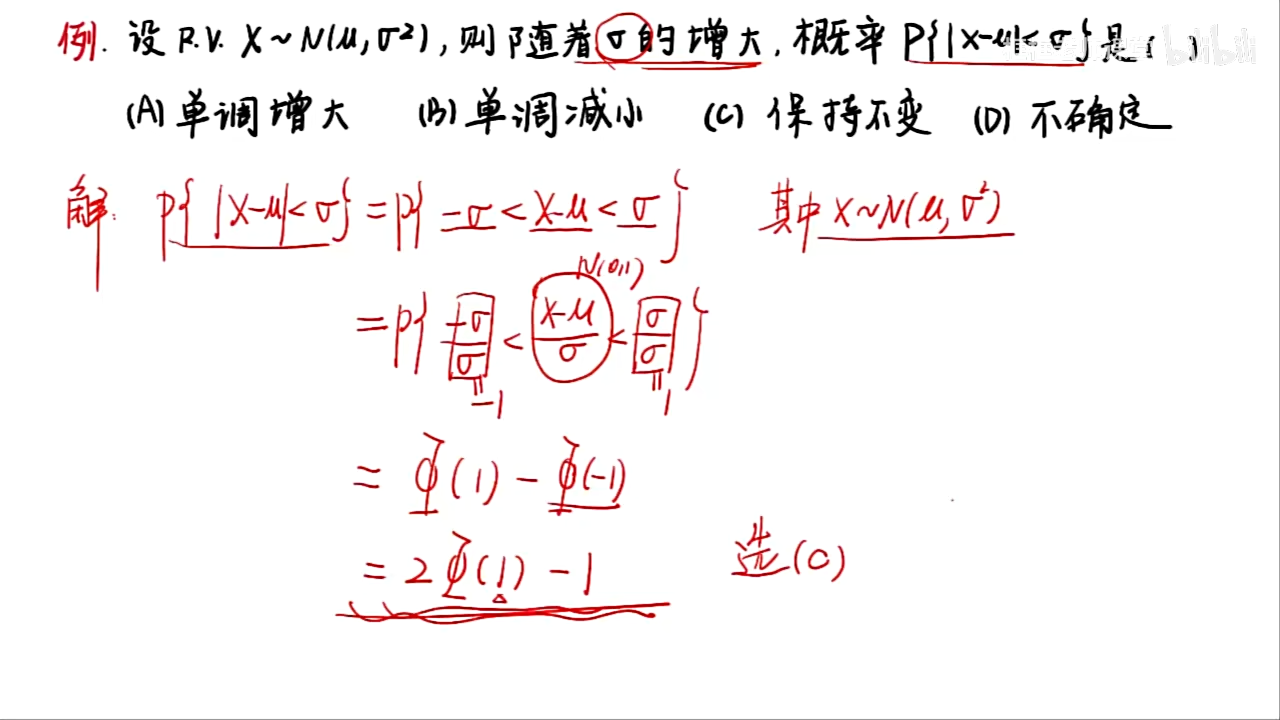 例. 设 R.V. X~N(μ,σ²), 则随着σ的增大, 概率 P{|X-μ|<σ}是( )
(A) 单调增大 (B) 单调减小 (C) 保持不变 (D) 不确定
解: P{|X-μ|<σ}=P{-σ<X-μ<σ} 其中 X~N(μ,σ²)
N(0,1)
=P{-σ/σ<(X-μ)/σ<σ/σ}
=-1 =1
= Φ(1) - Φ(-1)
= 2Φ(1) - 1 选(C)
bilibili